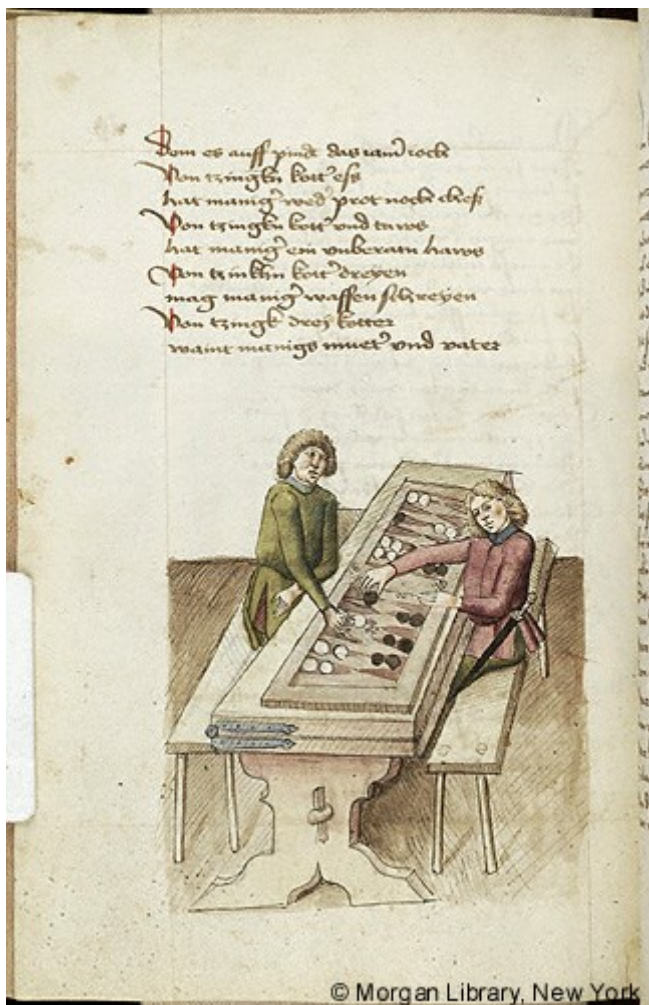 Dom es auff pind das ram̄ roch
Von tzingkn̄ kott' ess
hat manig' wed' prot noch chess
Von tzingkn̄ kott' vnd taws
hat manig' ein vnberatn haws
Von tzinkhn kott' dreyen
mag manig' waffen schreyen
Von tzingk drey kotter
waint manigs muet' vnd vater
© Morgan Library, New York